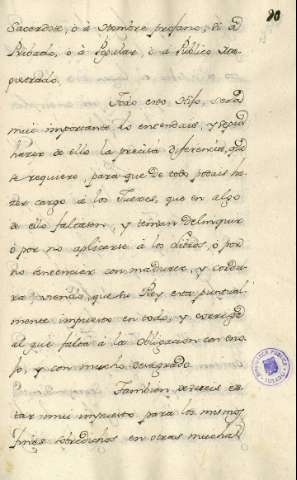 20
Sacerdote, ò à Hombre profano, ò à
Privado, ò à Popular, ò à Publico Ma-
gistrado.
Todo esto Hijo, será
mui importante lo entendais, y sepais
hazer de ello la precisa diferencia, que
se requiere, para que de todo podais ha-
cer cargo à los Juezes, que en algo
de ello faltaren, y teman delinquir
ò por no aplicarse à los Libros, ò por
no sentenciar con madurez, y cordu-
ra; viendo, que su Rey está puntual-
mente impuesto en todo, y corrige
al que falta à la Obligacion con eno-
jo, y con mucho desagrado.
Tambien deveis es-
tar mui impuesto para los mismos
fines sobredichos en otras muchas